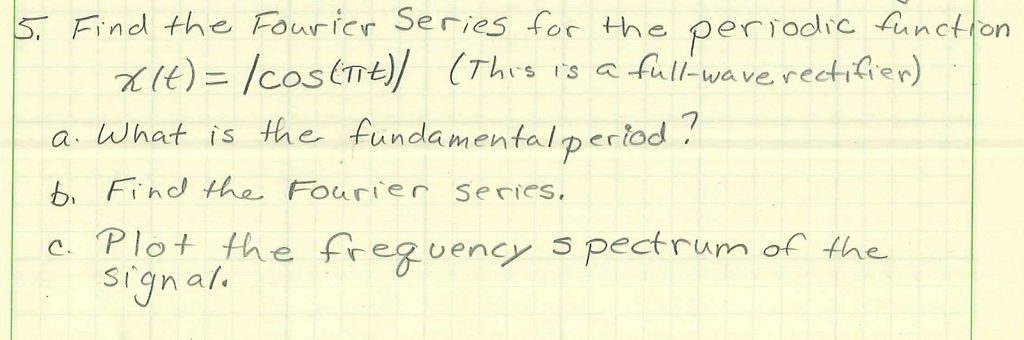 5. Find the Fourier Series for the periodic function
x(t) = |cos(πt)| (This is a full-wave rectifier)
a. What is the fundamental period?
b. Find the Fourier series.
c. Plot the frequency spectrum of the
signal.